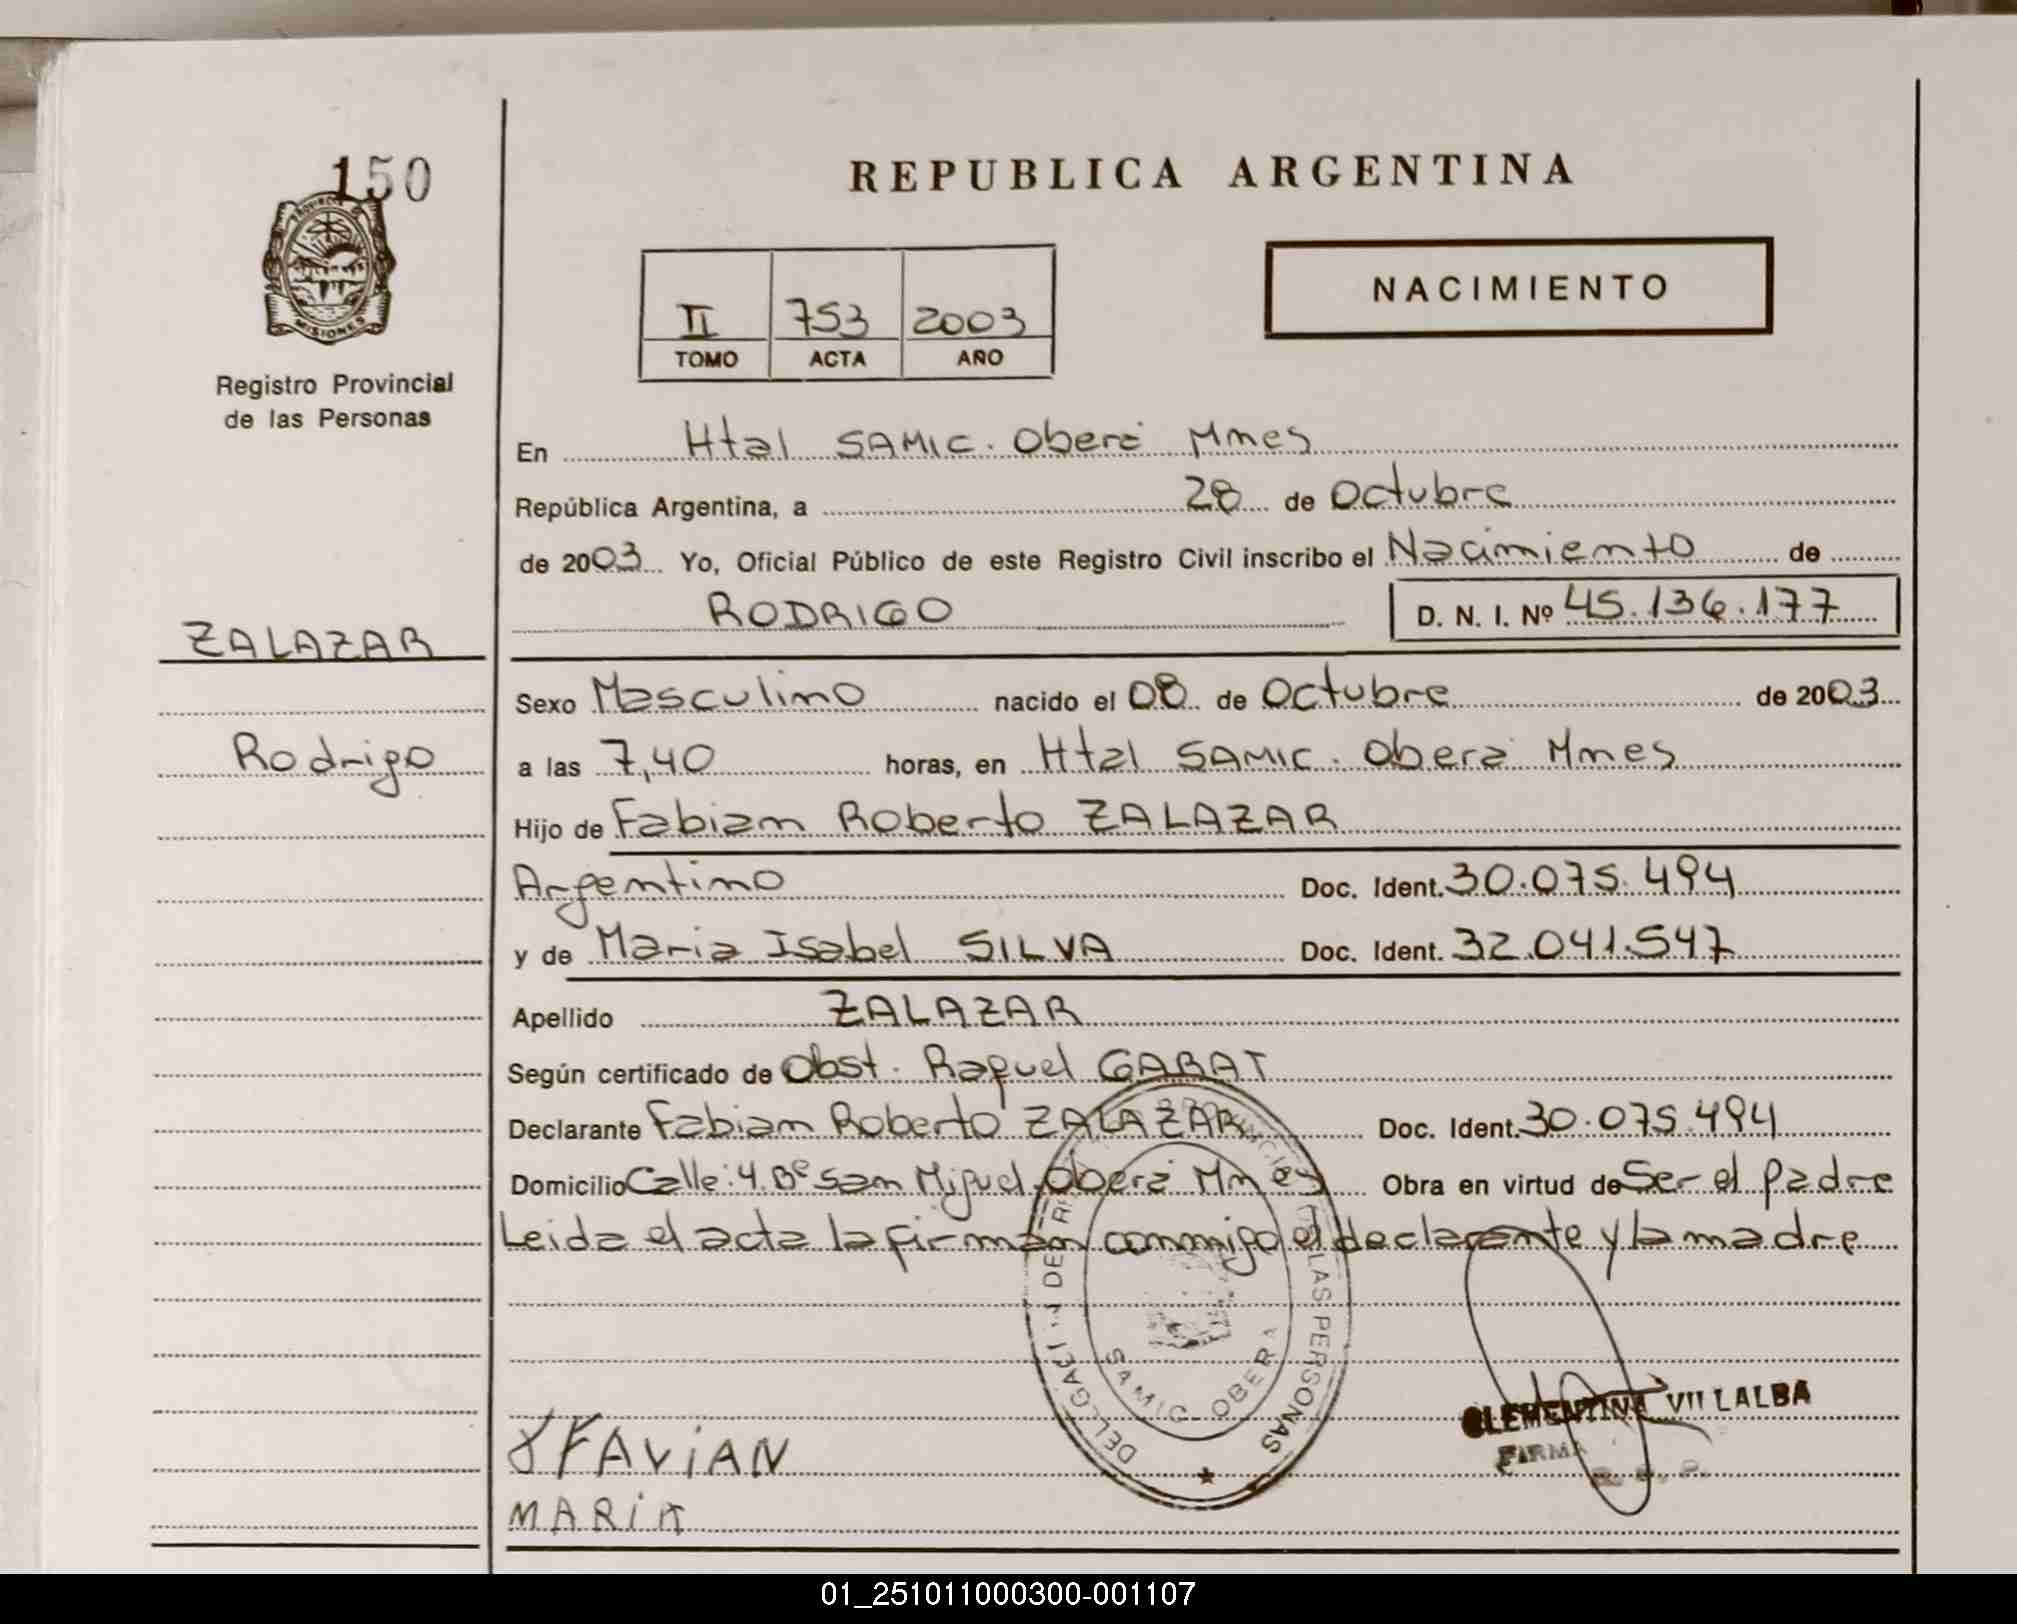 150
PROVINCIA DE
MISIONES
Registro Provincial
de las Personas
ZALAZAR
Rodrigo
REPUBLICA ARGENTINA
II 753 2003
TOMO ACTA AÑO
NACIMIENTO
En Htal SAMIC. Oberá Mnes
República Argentina, a 28 de Octubre
de 2003 Yo, Oficial Público de este Registro Civil inscribo el Nacimiento de
RODRIGO D. N. I. Nº 45.136.177
Sexo Masculino nacido el 08 de Octubre de 2003
a las 7,40 horas, en Htal SAMIC. Oberá Mnes
Hijo de Fabian Roberto ZALAZAR
Argentino Doc. Ident. 30.075.494
y de Maria Isabel SILVA Doc. Ident. 32.041.547
Apellido ZALAZAR
Según certificado de Obst. Raquel GABAT
Declarante Fabian Roberto ZALAZAR Doc. Ident. 30.075.494
Domicilio Calle: 4. Bº San Miguel. Oberá Mnes Obra en virtud de Ser el padre
Leida el acta la firman conmigo el declarante y la madre
LAS PERSONAS
SAMIC - OBERA
CLEMENTINA VILLALBA
FIRMA
FAViAN
MARiA
01_251011000300-001107